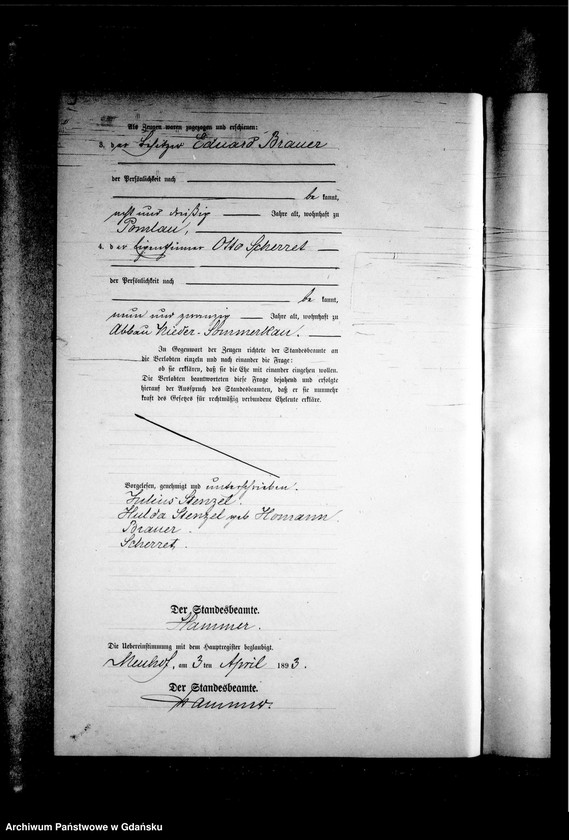 Als Zeugen waren zugezogen und erschienen:
3. der Besitzer Eduard Brauer
der Persönlichkeit nach
be kannt,
acht und dreißig Jahre alt, wohnhaft zu
Pomlau,
4. der Eigenthümer Otto Scherret
der Persönlichkeit nach
be kannt,
neun und zwanzig Jahre alt, wohnhaft zu
Abbau Nieder-Sommerkau.
In Gegenwart der Zeugen richtete der Standesbeamte an
die Verlobten einzeln und nach einander die Frage:
ob sie erklären, daß sie die Ehe mit einander eingehen wollen.
Die Verlobten beantworteten diese Frage bejahend und erfolgte
hierauf der Ausspruch des Standesbeamten, daß er sie nunmehr
kraft des Gesetzes für rechtmäßig verbundene Eheleute erkläre.
Vorgelesen, genehmigt und unterschrieben.
Julius Stenzel.
Hulda Stenzel geb Homann.
Brauer.
Scherret.
Der Standesbeamte.
Hammer.
Die Uebereinstimmung mit dem Hauptregister beglaubigt.
Neuhof, am 3 ten April 1893.
Der Standesbeamte.
Hammer.
Archiwum Państwowe w Gdańsku